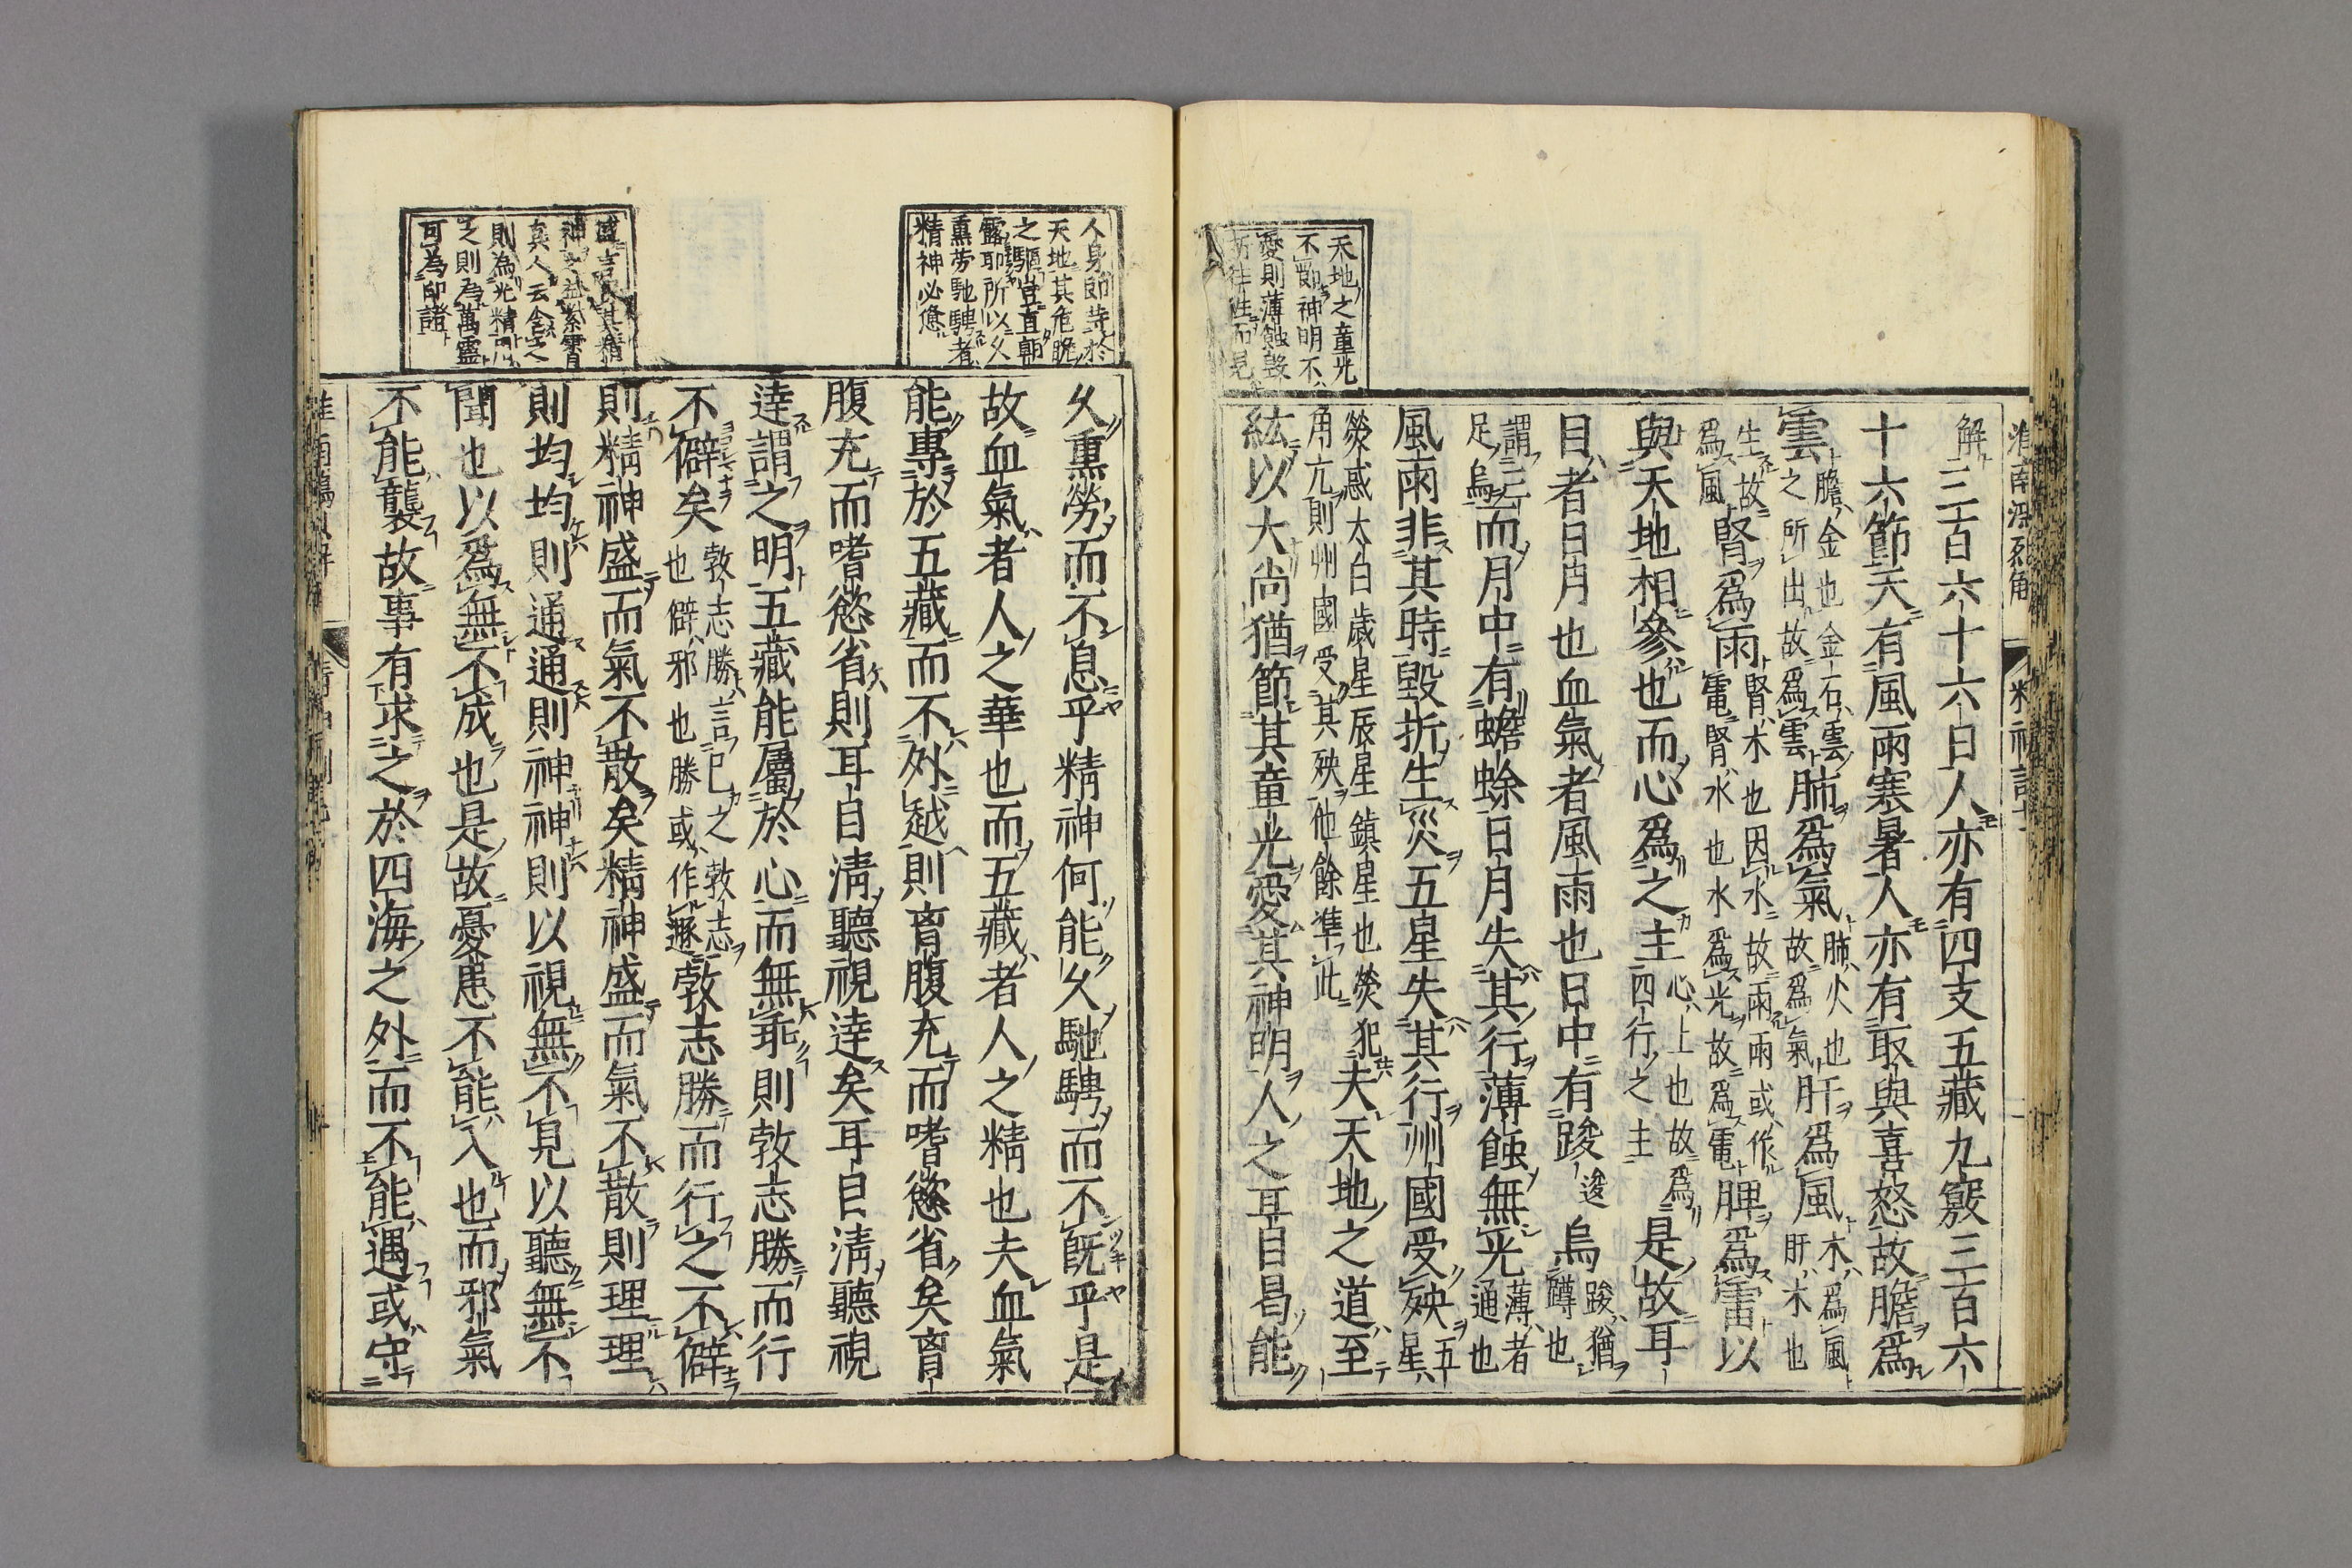 天地之童光
不節神明不
愛則薄蝕毀
折往往而見
解三百六十六日人亦有四支五藏九竅三百六
十六節天有風雨寒暑人亦有取與喜怒故膽爲
雲膽金也金石雲之所出故爲雲肺爲氣肺火也故爲氣肝爲風木爲風肝木也
生故爲風腎爲雨腎水也因水故雨雨或作電腎水也水爲光故爲電脾爲雷以
與天地相參也而心爲之主心上也故爲四行之主是故耳
目者日月也血氣者風雨也日中有踆逡烏踆猶蹲也
謂三足烏而月中有蟾蜍日月失其行薄蝕無光薄者通也
風雨非其時毀折生災五星失其行州國受殃五星
熒惑太白歲星辰星鎮星也熒犯角亢則州國受其殃他餘準此夫天地之道至
紘以大尚猶節其童光愛其神明人之耳目曷能
人身節苦於
天地其危脆
之軀豈直朝
露耶所以久
熏勞馳騁者
精神必憊
久熏勞而不息乎精神何能久馳騁而不既乎是
故血氣者人之華也而五藏者人之精也夫血氣
能專於五藏而不外越則胷腹充而嗜慾省矣胷
腹充而嗜慾省則耳目淸聽視達矣耳目淸聽視
達謂之明五藏能屬於心而無乖則敦志勝而行
不僻矣敦志勝言己之敦志也僻邪也勝或作遯敦志勝而行之不僻
則精神盛而氣不散矣精神盛而氣不散則理理
則均均則通通則神神則以視無不見以聽無不
聞也以爲無不成也是故憂患不能入也而邪氣
不能襲故事有求之於四海之外而不能遇或守
眞人云含之
則爲光精
之則爲萬靈
可爲印證